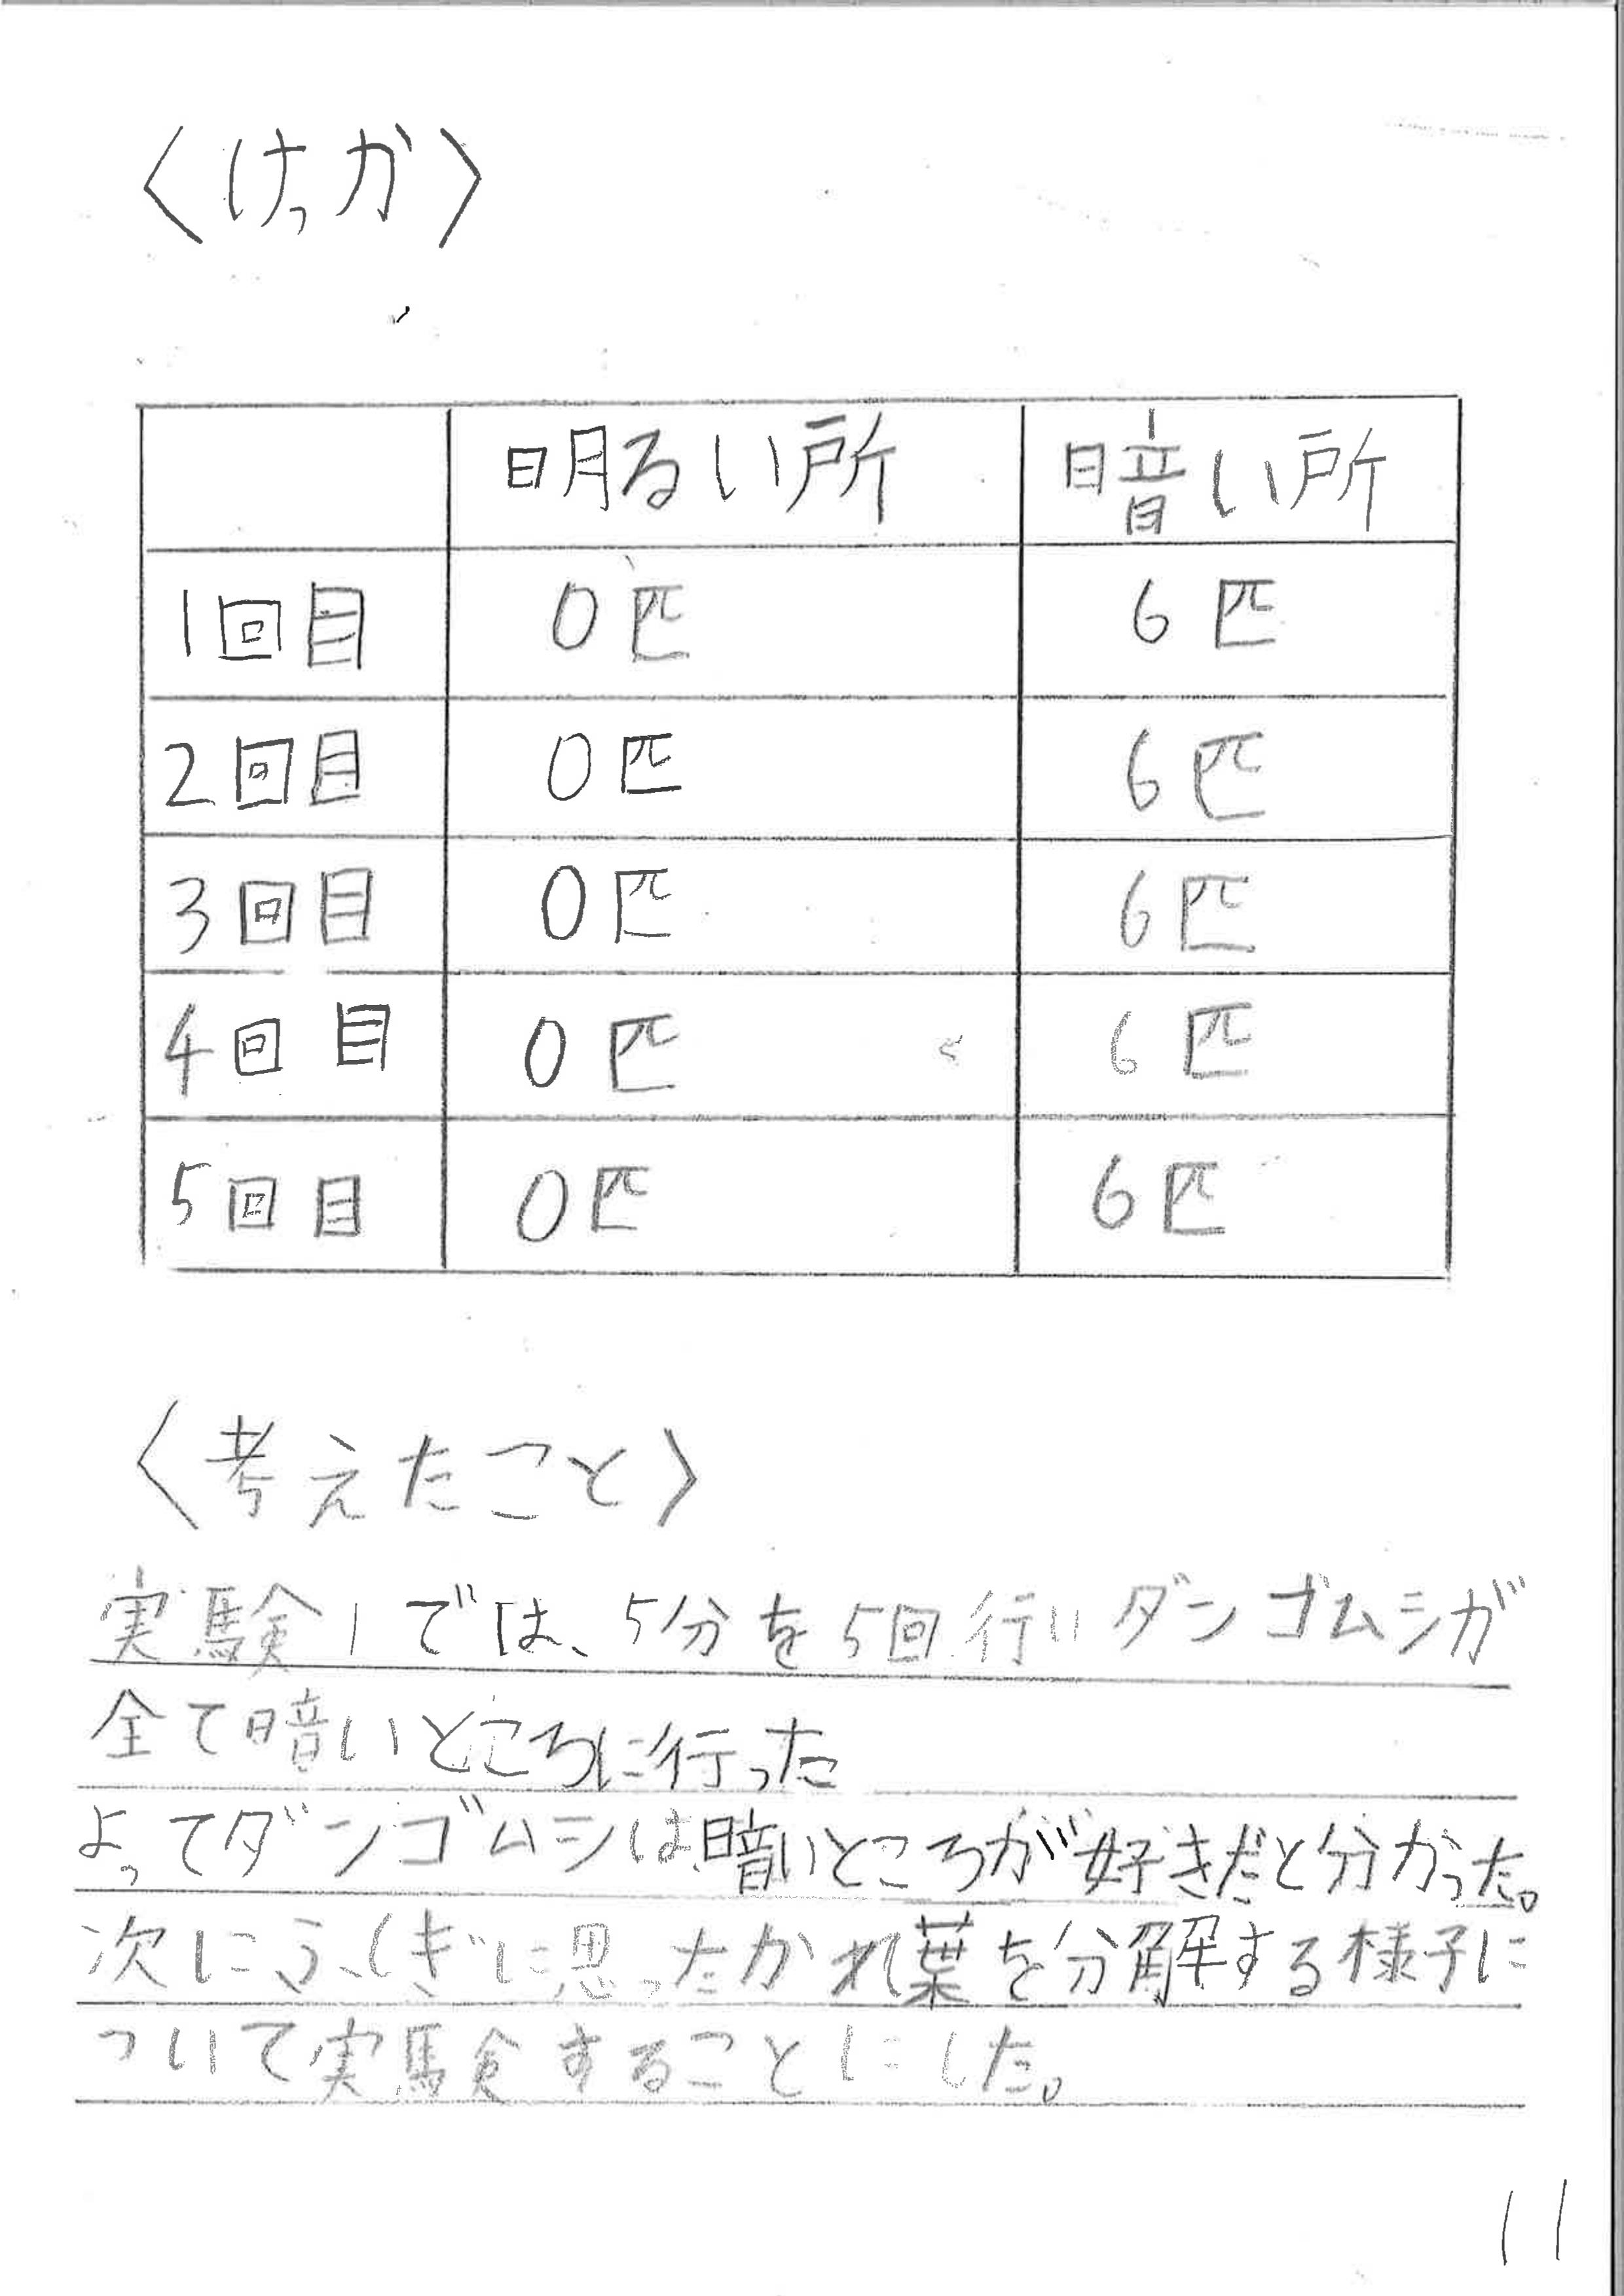 〈けっか〉
明るい所 暗い所
1回目 0匹 6匹
2回目 0匹 6匹
3回目 0匹 6匹
4回目 0匹 6匹
5回目 0匹 6匹
〈考えたこと〉
実験1では、5分を5回行いダンゴムシが
全て暗いところに行った
よってダンゴムシは暗いところが好きだと分かった。
次にふしぎに思ったかれ葉を分解する様子に
ついて実験することにした。
11